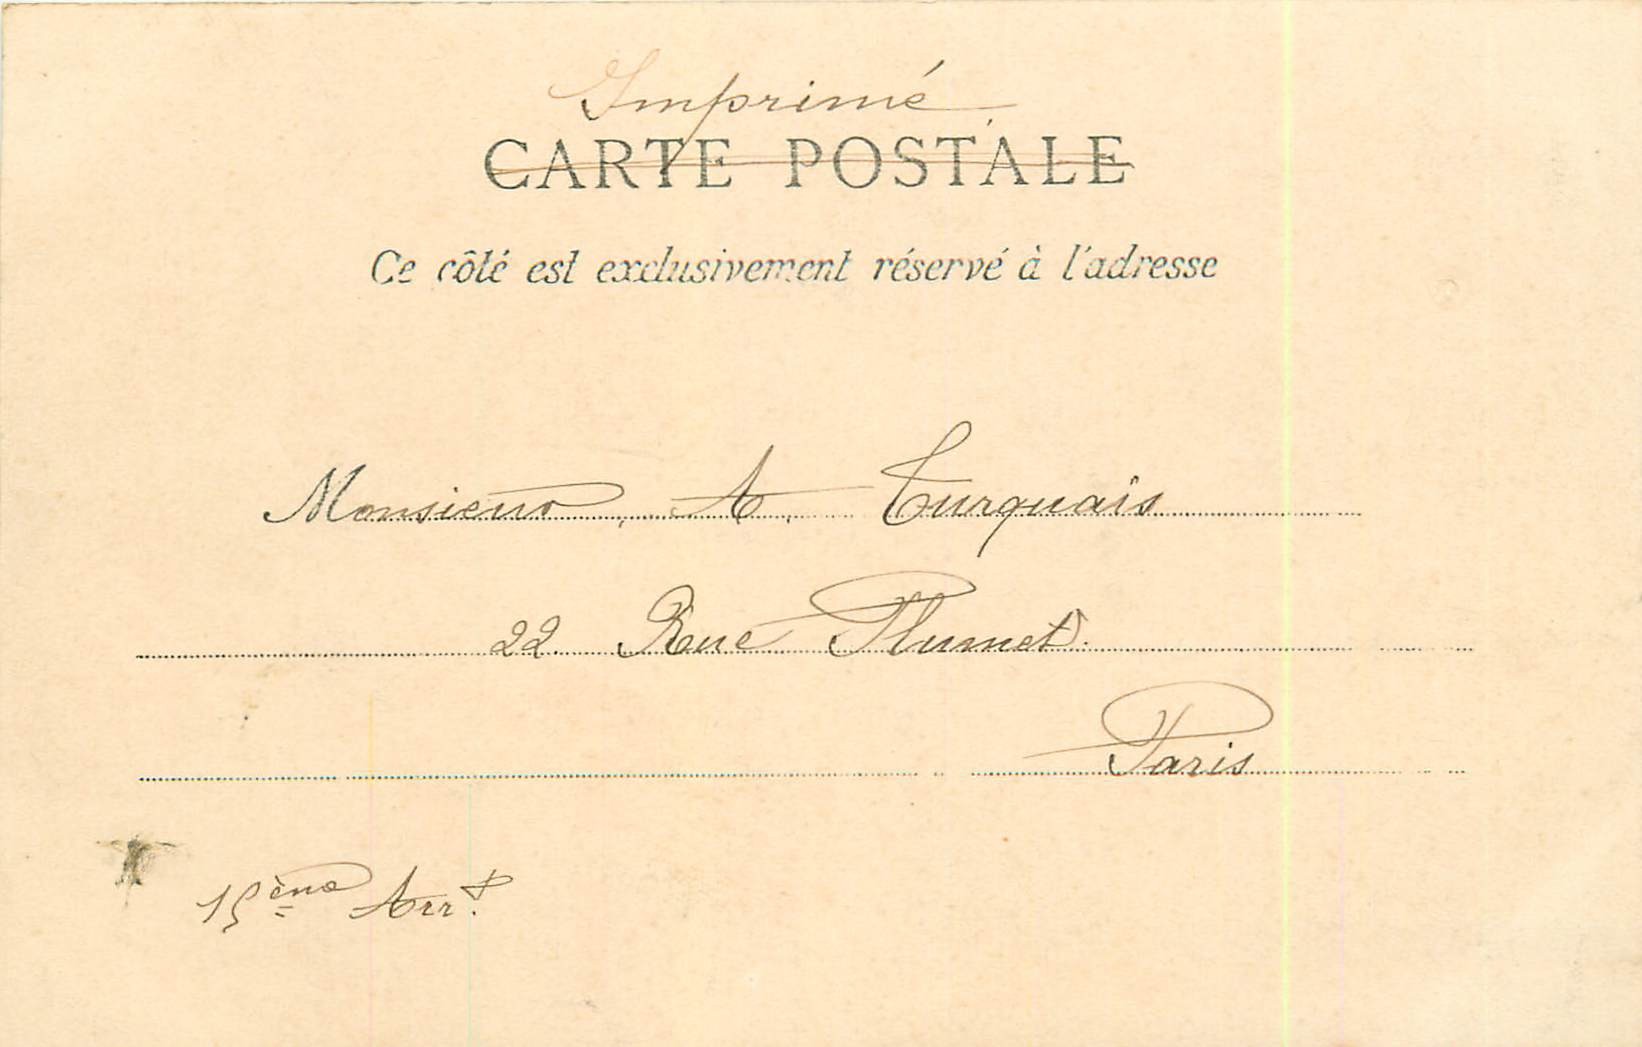 Imprimé
CARTE POSTALE
Ce côté est exclusivement réservé à l'adresse
Monsieur A. Turquais
22 Rue Plumet.
Paris
15ème Arrt.